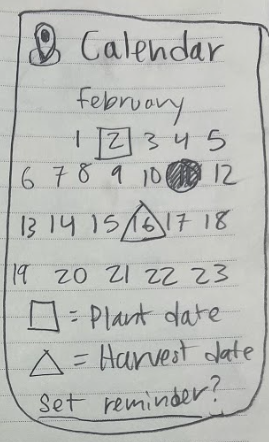 Calendar
February
1 2 3 4 5
6 7 8 9 10 12
13 14 15 16 17 18
19 20 21 22 23
= Plant date
= Harvest date
set reminder?